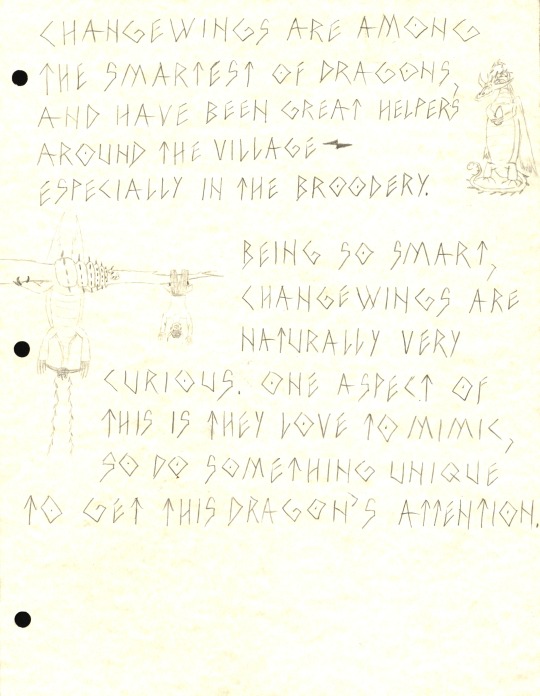 CHANGEWINGS ARE AMONG
THE SMARTEST OF DRAGONS,
AND HAVE BEEN GREAT HELPERS
AROUND THE VILLAGE -
ESPECIALLY IN THE BROODERY.
BEING SO SMART,
CHANGEWINGS ARE
NATURALLY VERY
CURIOUS. ONE ASPECT OF
THIS IS THEY LOVE TO MIMIC,
SO DO SOMETHING UNIQUE
TO GET THIS DRAGON'S ATTENTION.